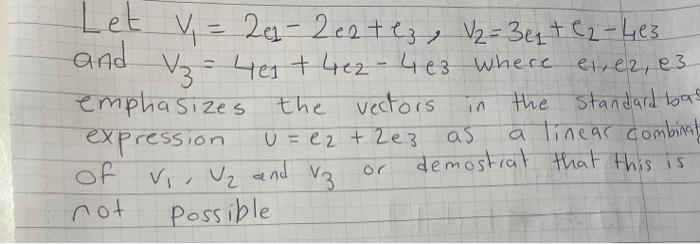 Let V₁ = 2e1 - 2e2 + e3, V2 = 3e1 + e2 - 4e3
and V3 = 4e1 + 4e2 - 4e3 where e1, e2, e3
emphasizes the vectors in the standard bas
expression U = e2 + 2e3 as a linear combinat
of V1, V2 and V3 or demostrat that this is
not possible